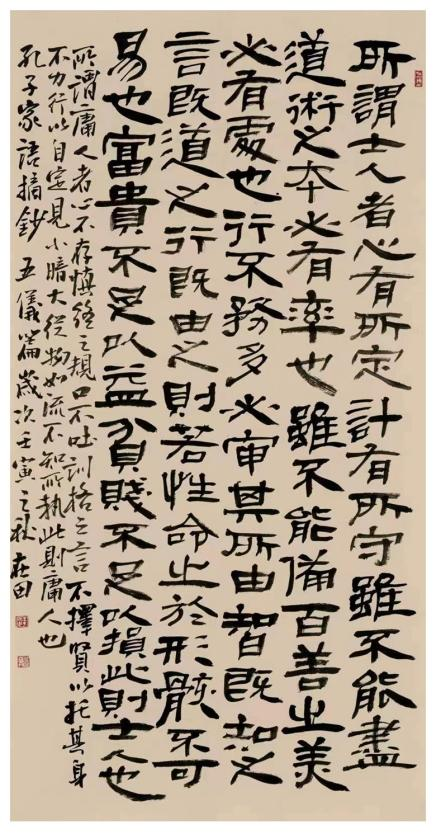 所謂士人者心有所定計有所守雖不能盡
道術之本必有率也雖不能備百善之美
必有處也行不務多必審其所由智既知之
言既道之行既由之則若性命之於形骸不可
易也富貴不足以益貧賤不足以損此則士人也
所謂庸人者心不存慎終之規口不吐訓格之言不擇賢以托其身
不力行以自定見小暗大從物如流不知所執此則庸人也
孔子家語摘鈔 五儀篇 歲次壬寅之秋